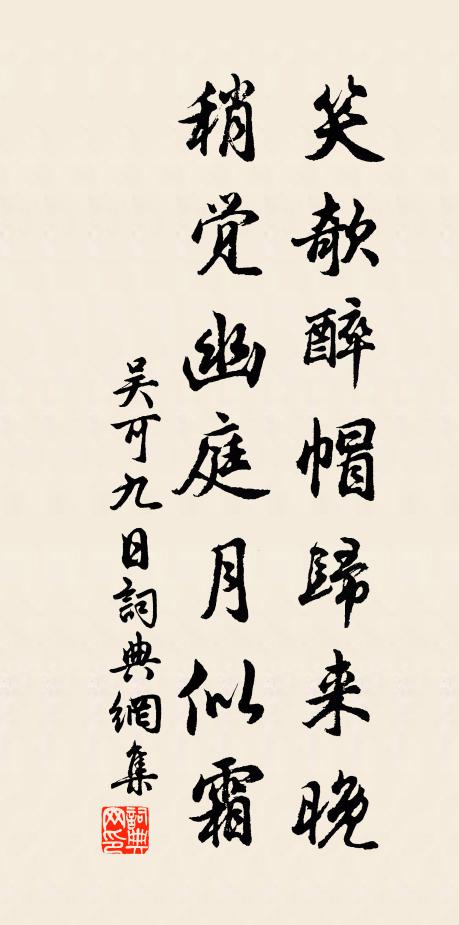 笑欹醉帽歸来晚
稍覺幽庭月似霜
吴可九日詞典網集
詞典
网印